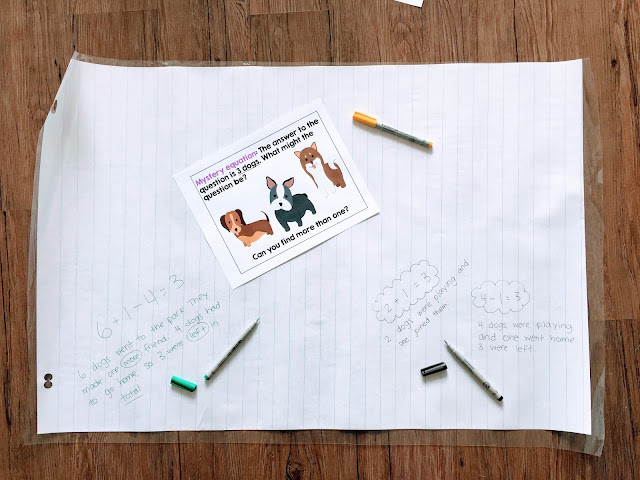 Mystery equation: The answer to the
question is 3 dogs. What might the
question be?
Can you find more than one?
6 + 1 - 4 = 3
6 dogs went to the park. They
made one more friend. 4 dogs had
to go home so 3 were left in
total
2 + 1 = 3
2 dogs were playing and
one joined them
4 - 1 = 3
4 dogs were playing
and one went home
3 were left.